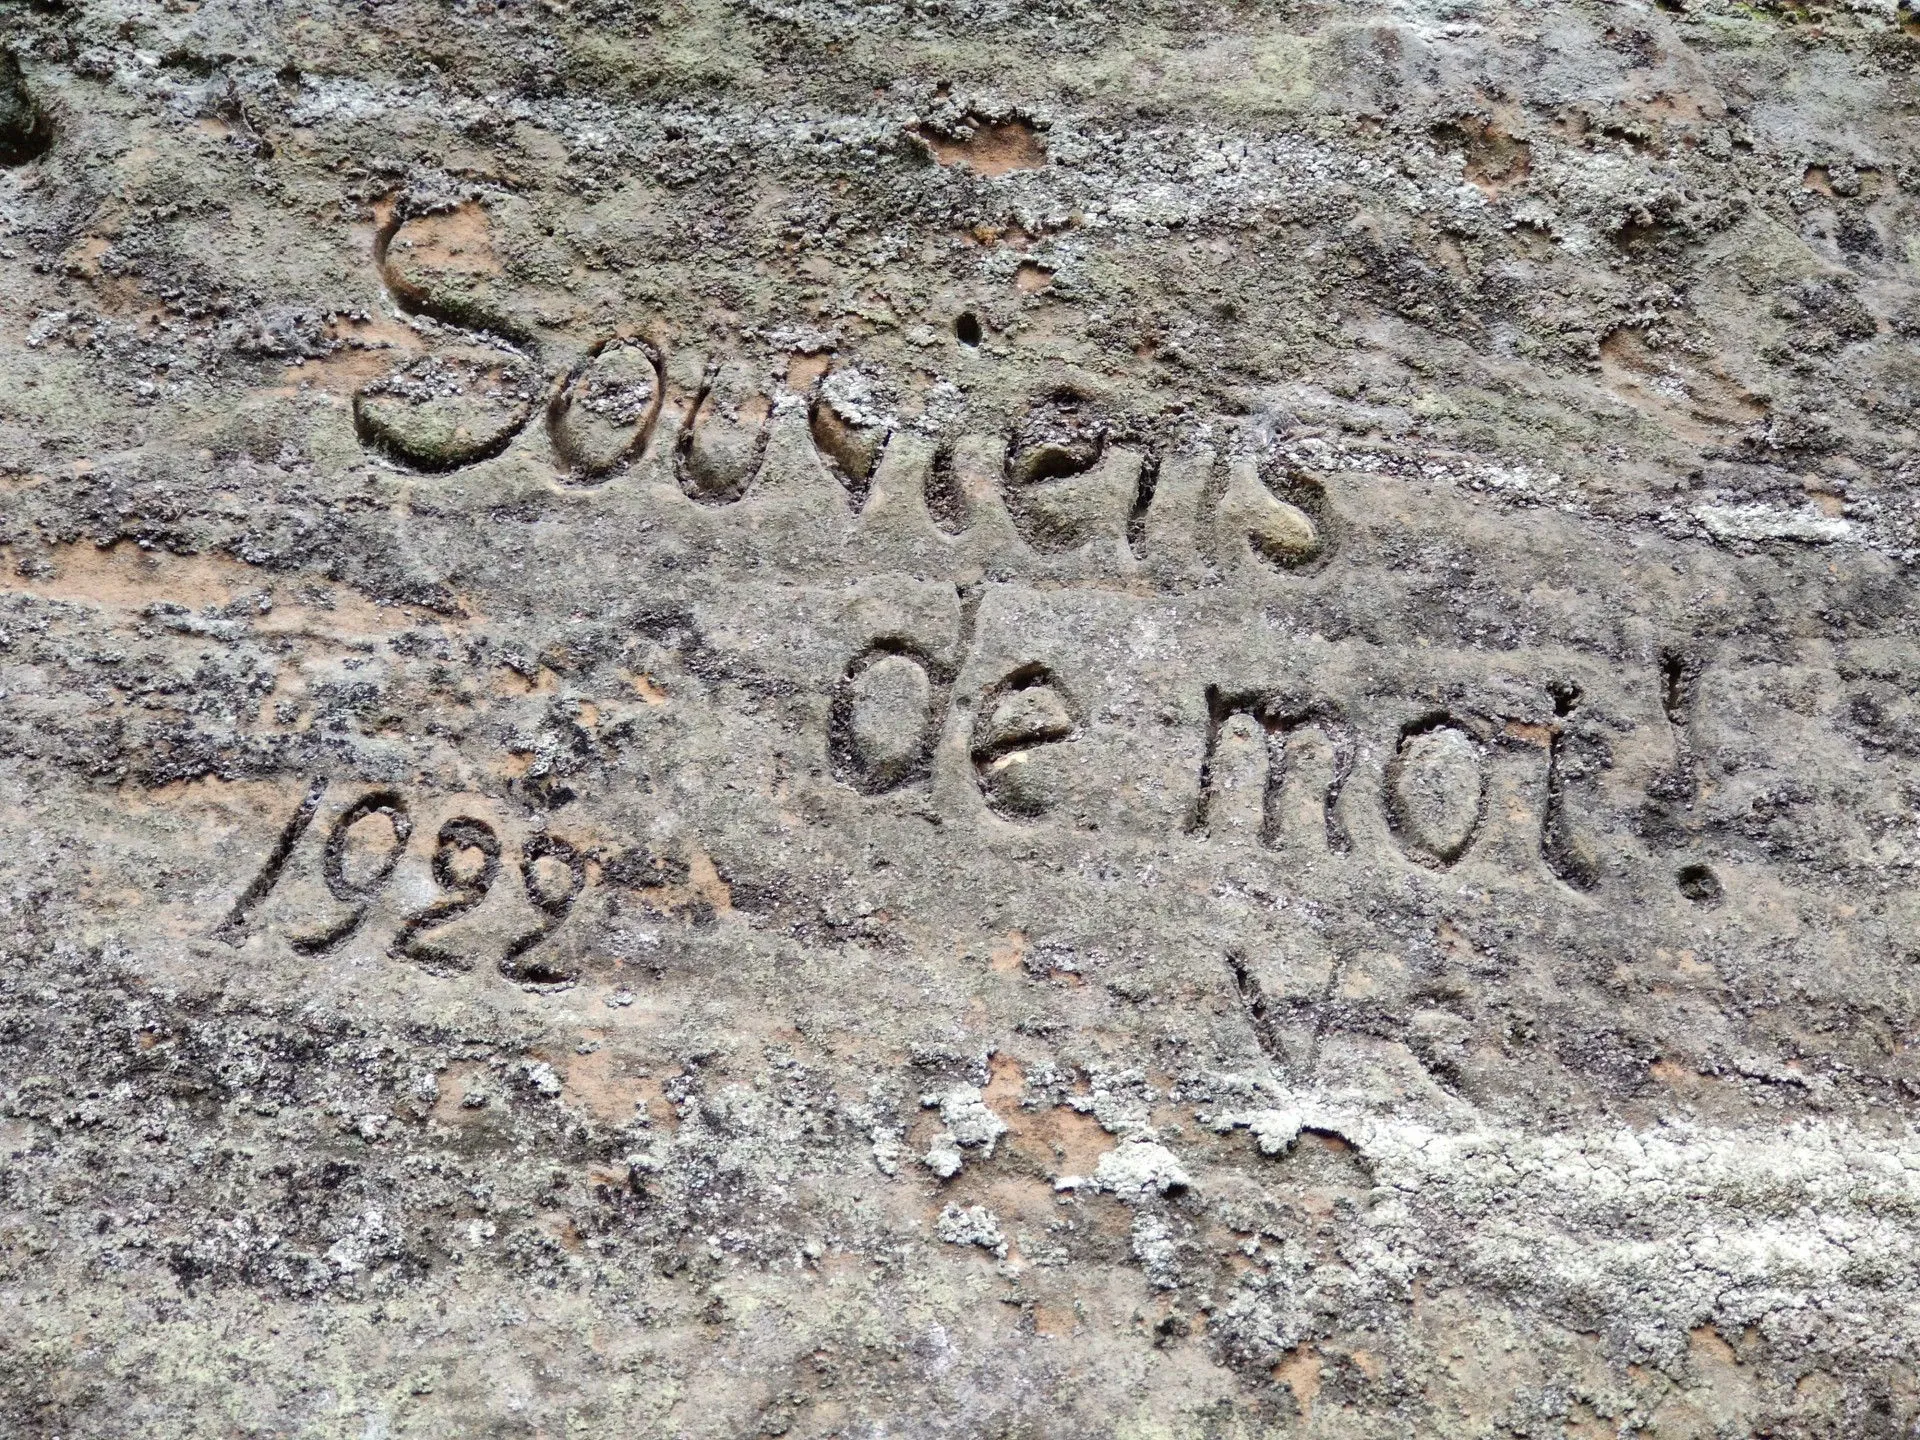 Souviens
de moi!
1922
K